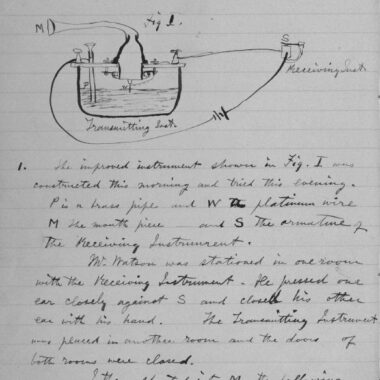 Fig 1.
M
S
Receiving Inst.
P
W
Transmitting Inst.
1. The improved instrument shown in Fig. I was
constructed this morning and tried this evening.
P is a brass pipe and W the platinum wire
M the mouth piece and S the armature of
the Receiving Instrument.
Mr. Watson was stationed in one room
with the Receiving Instrument. He pressed one
ear closely against S and closed his other
ear with his hand. The Transmitting Instrument
was placed in another room and the doors of
both rooms were closed.
I then shouted into M the following